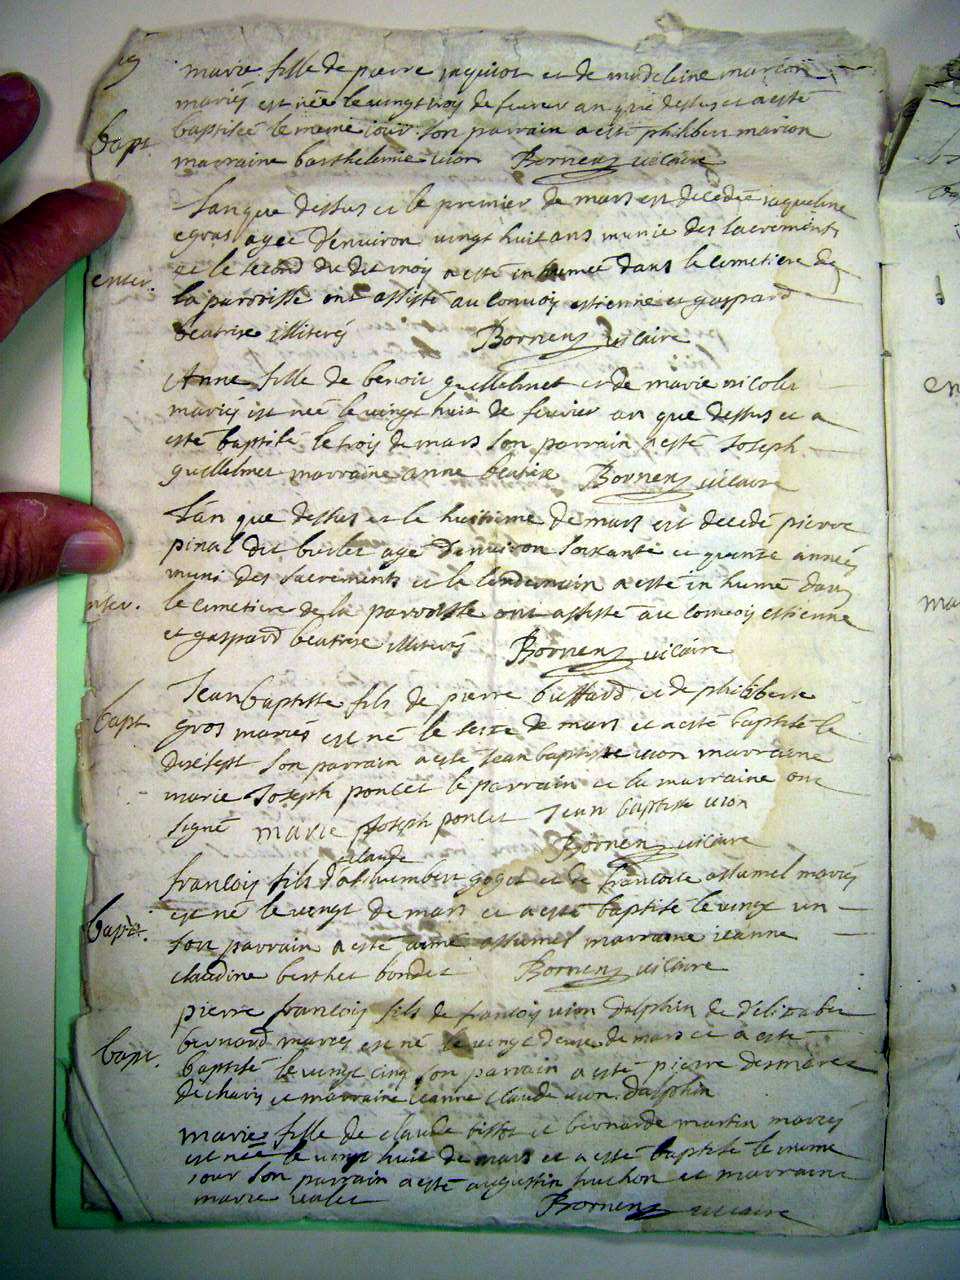 marie fille de pierre jaquiot et de madeleine marion
mariés est née le vingt trois de fevrer an que dessus et a esté
bapt.
baptisée le meme jour son parrain a esté philibert marion
marraine barthelemie vion Bornens vicaire
Lan que dessus et le premier de mars est decedée jaqueline
egros agee d'environ vingt huit ans munie des sacrements
enter.
et le second du dit mois a esté inhumée dans le cimetiere de
la parroisse ont assisté au convoy estienne et gaspard
beatrise illiterés Bornens vicaire
Anne fille de benoit guillelmet et de marie nicolet
mariés est née le vingt huit de fevrier an que dessus et a
esté baptisé le trois de mars son parrain a esté Joseph
guillelmet marraine anne beatrix Bornens vicaire
L'an que dessus et le huitieme de mars est decedé pierre
pinal dit agé d'environ soixante et quinse années
muni des sacrements et le lendemain a esté inhumé dans
enter.
le cimetiere de la parroisse ont assisté au convoy estienne
et gaspard beatrise illiterés Bornens vicaire
Jean baptiste fils de pierre buffard et de philiberte
bapt
gros mariés est né le sesse de mars et a esté baptisé le
dixsept son parrain a esté Jean baptiste vion marraine
marie Joseph poncet le parrain et la marraine ont
signé marie Joseph poncet Jean baptiste vion
Bornens vicaire
claude
françois fils d'anthumbert goget et de francoise assumel mariés
est né le vingt de mars et a esté baptisé le vingt un
bapt.
son parrain a esté aimé assumel marraine jeanne
claudine berthet bondet Bornens vicaire
pierre françois fils de françois vion dalphin de d'elizabet
bernard mariés est né le vingt deux de mars et a esté
bapt.
baptisé le vingt cinq son parrain a esté pierre desmares
de charis et marraine jeanne claude vion dalphin
marie fille de claude tissot et bernarde martin mariés
est née le vingt huit de mars et a esté baptisé le meme
jour son parrain a esté augustin huchon et marraine
marie Bornens vicaire